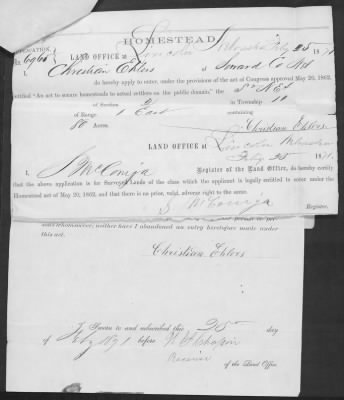 HOMESTEAD.
APPLICATION,
No. 6966
LAND OFFICE at Lincoln Nebraska Feby 25 1871
I, Christian Ehlers of Seward Co Neb
do hereby apply to enter, under the provisions of the act of Congress approved May 20, 1862,
entitled "An act to secure homesteads to actual settlers on the public domain," the
of Section 2 in Township 10
of Range 1 East containing
80 Acres.
Christian Ehlers
LAND OFFICE at Lincoln Nebraska
Feby 25 1871.
I, S McConiga Register of the Land Office, do hereby certify
that the above application is for Surveyed Lands of the class which the applicant is legally entitled to enter under the
Homestead act of May 20, 1862, and that there is no prior, valid, adverse right to the same.
S McConiga
Register.
whomsoever; neither have I abandoned an entry heretofore made under
this act.
Christian Ehlers
Sworn to and subscribed this 25 day
of Feby 1871 before
Receiver
of the Land Office.